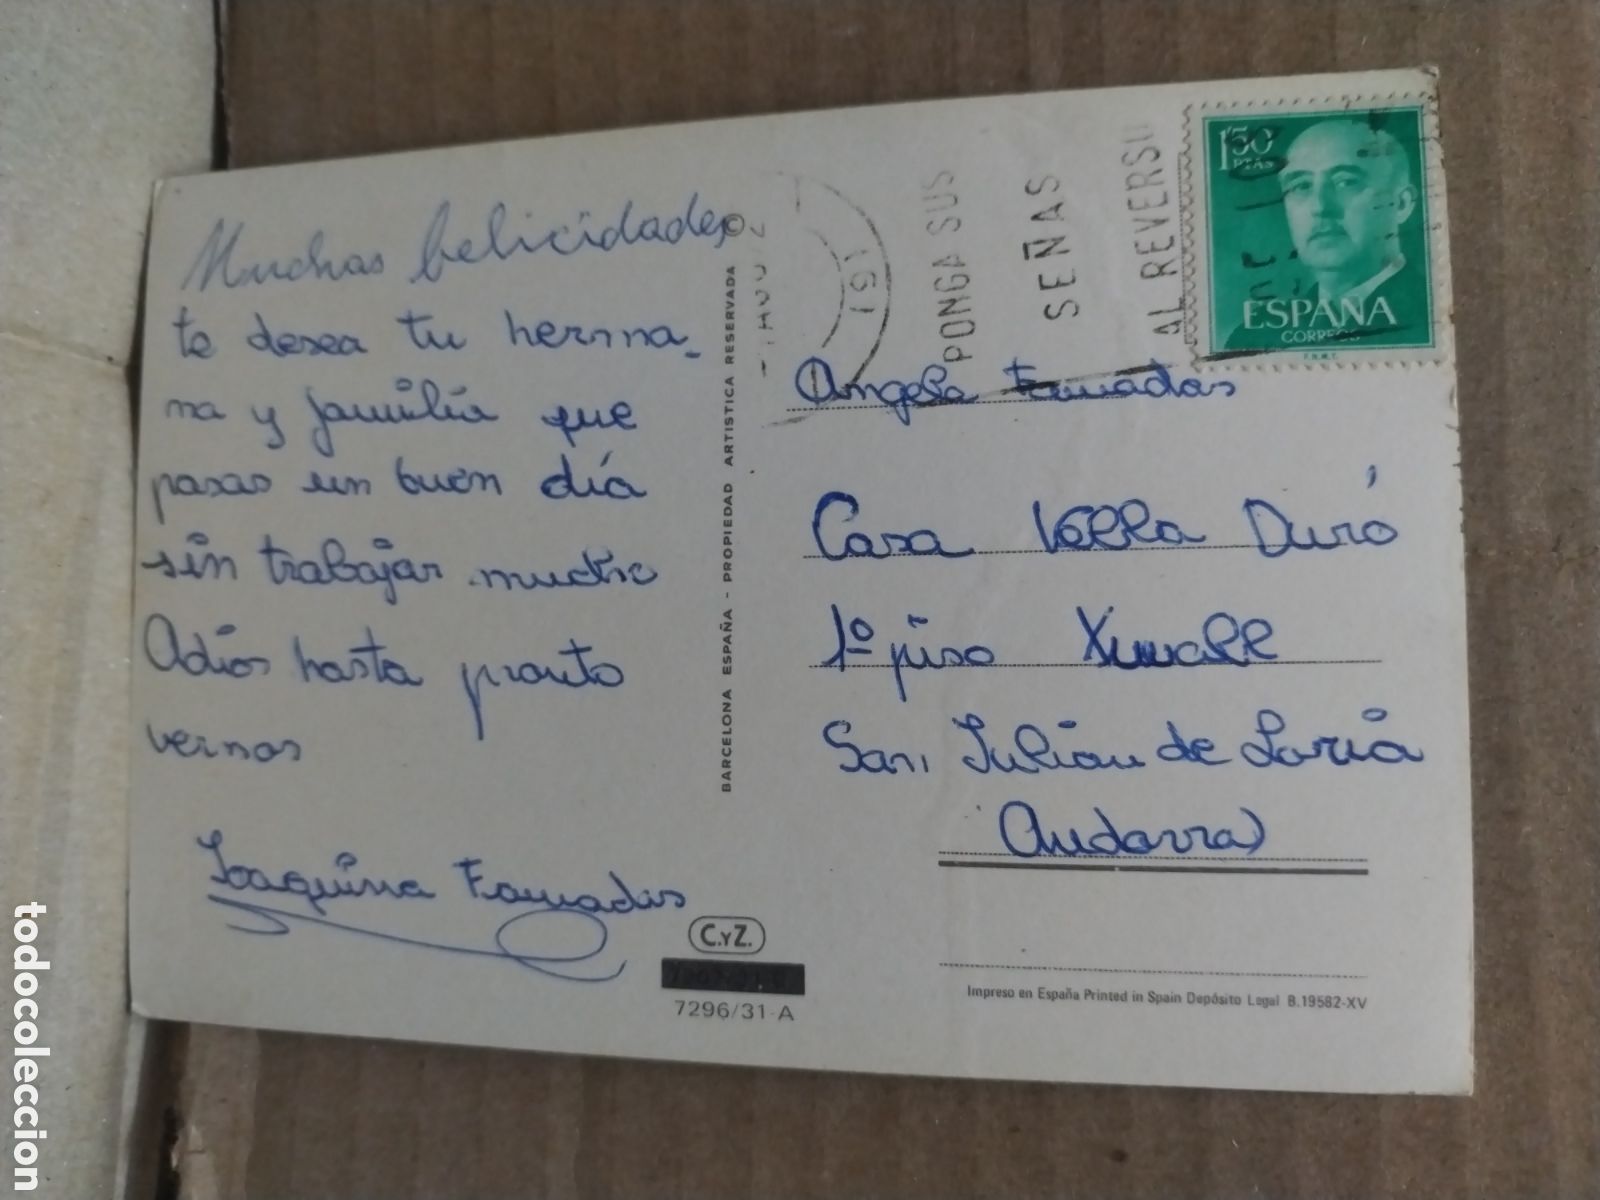 Muchas felicidades
te desea tu herma-
na y familia que
pasas un buen día
sin trabajar mucho
Adios hasta pronto
vernos
Joaquina Famadas
C.Y Z.
7296/31-A
BARCELONA ESPAÑA - PROPIEDAD ARTISTICA RESERVADA ©
191
PONGA SUS
SEÑAS
AL REVERSO
1'50
PTAS
ESPAÑA
CORREOS
F.N.M.T.
Angela Famadas
Casa Vella Duró
1º piso
San Julian de Loria
Andorra
Impreso en España Printed in Spain Depósito Legal B.19582-XV
todocoleccion